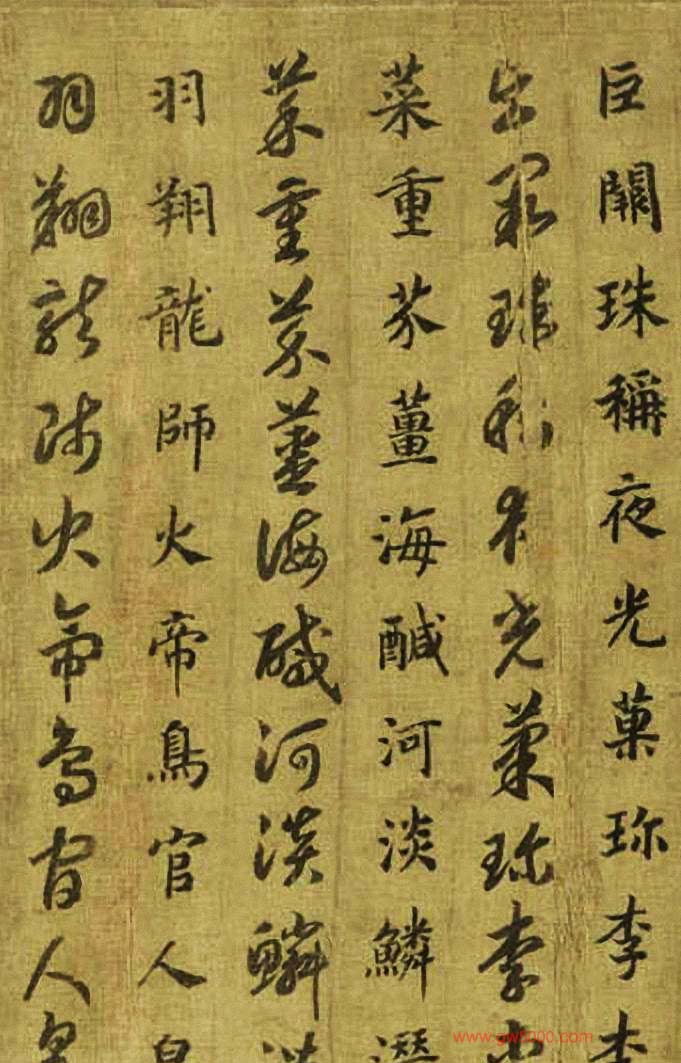 巨闕珠稱夜光菓珎李
巨闕珠稱夜光菓珎李
菜重芥薑海醎河淡鱗
菜重芥薑海醎河淡鱗
羽翔龍師火帝鳥官人
羽翔龍師火帝鳥官人